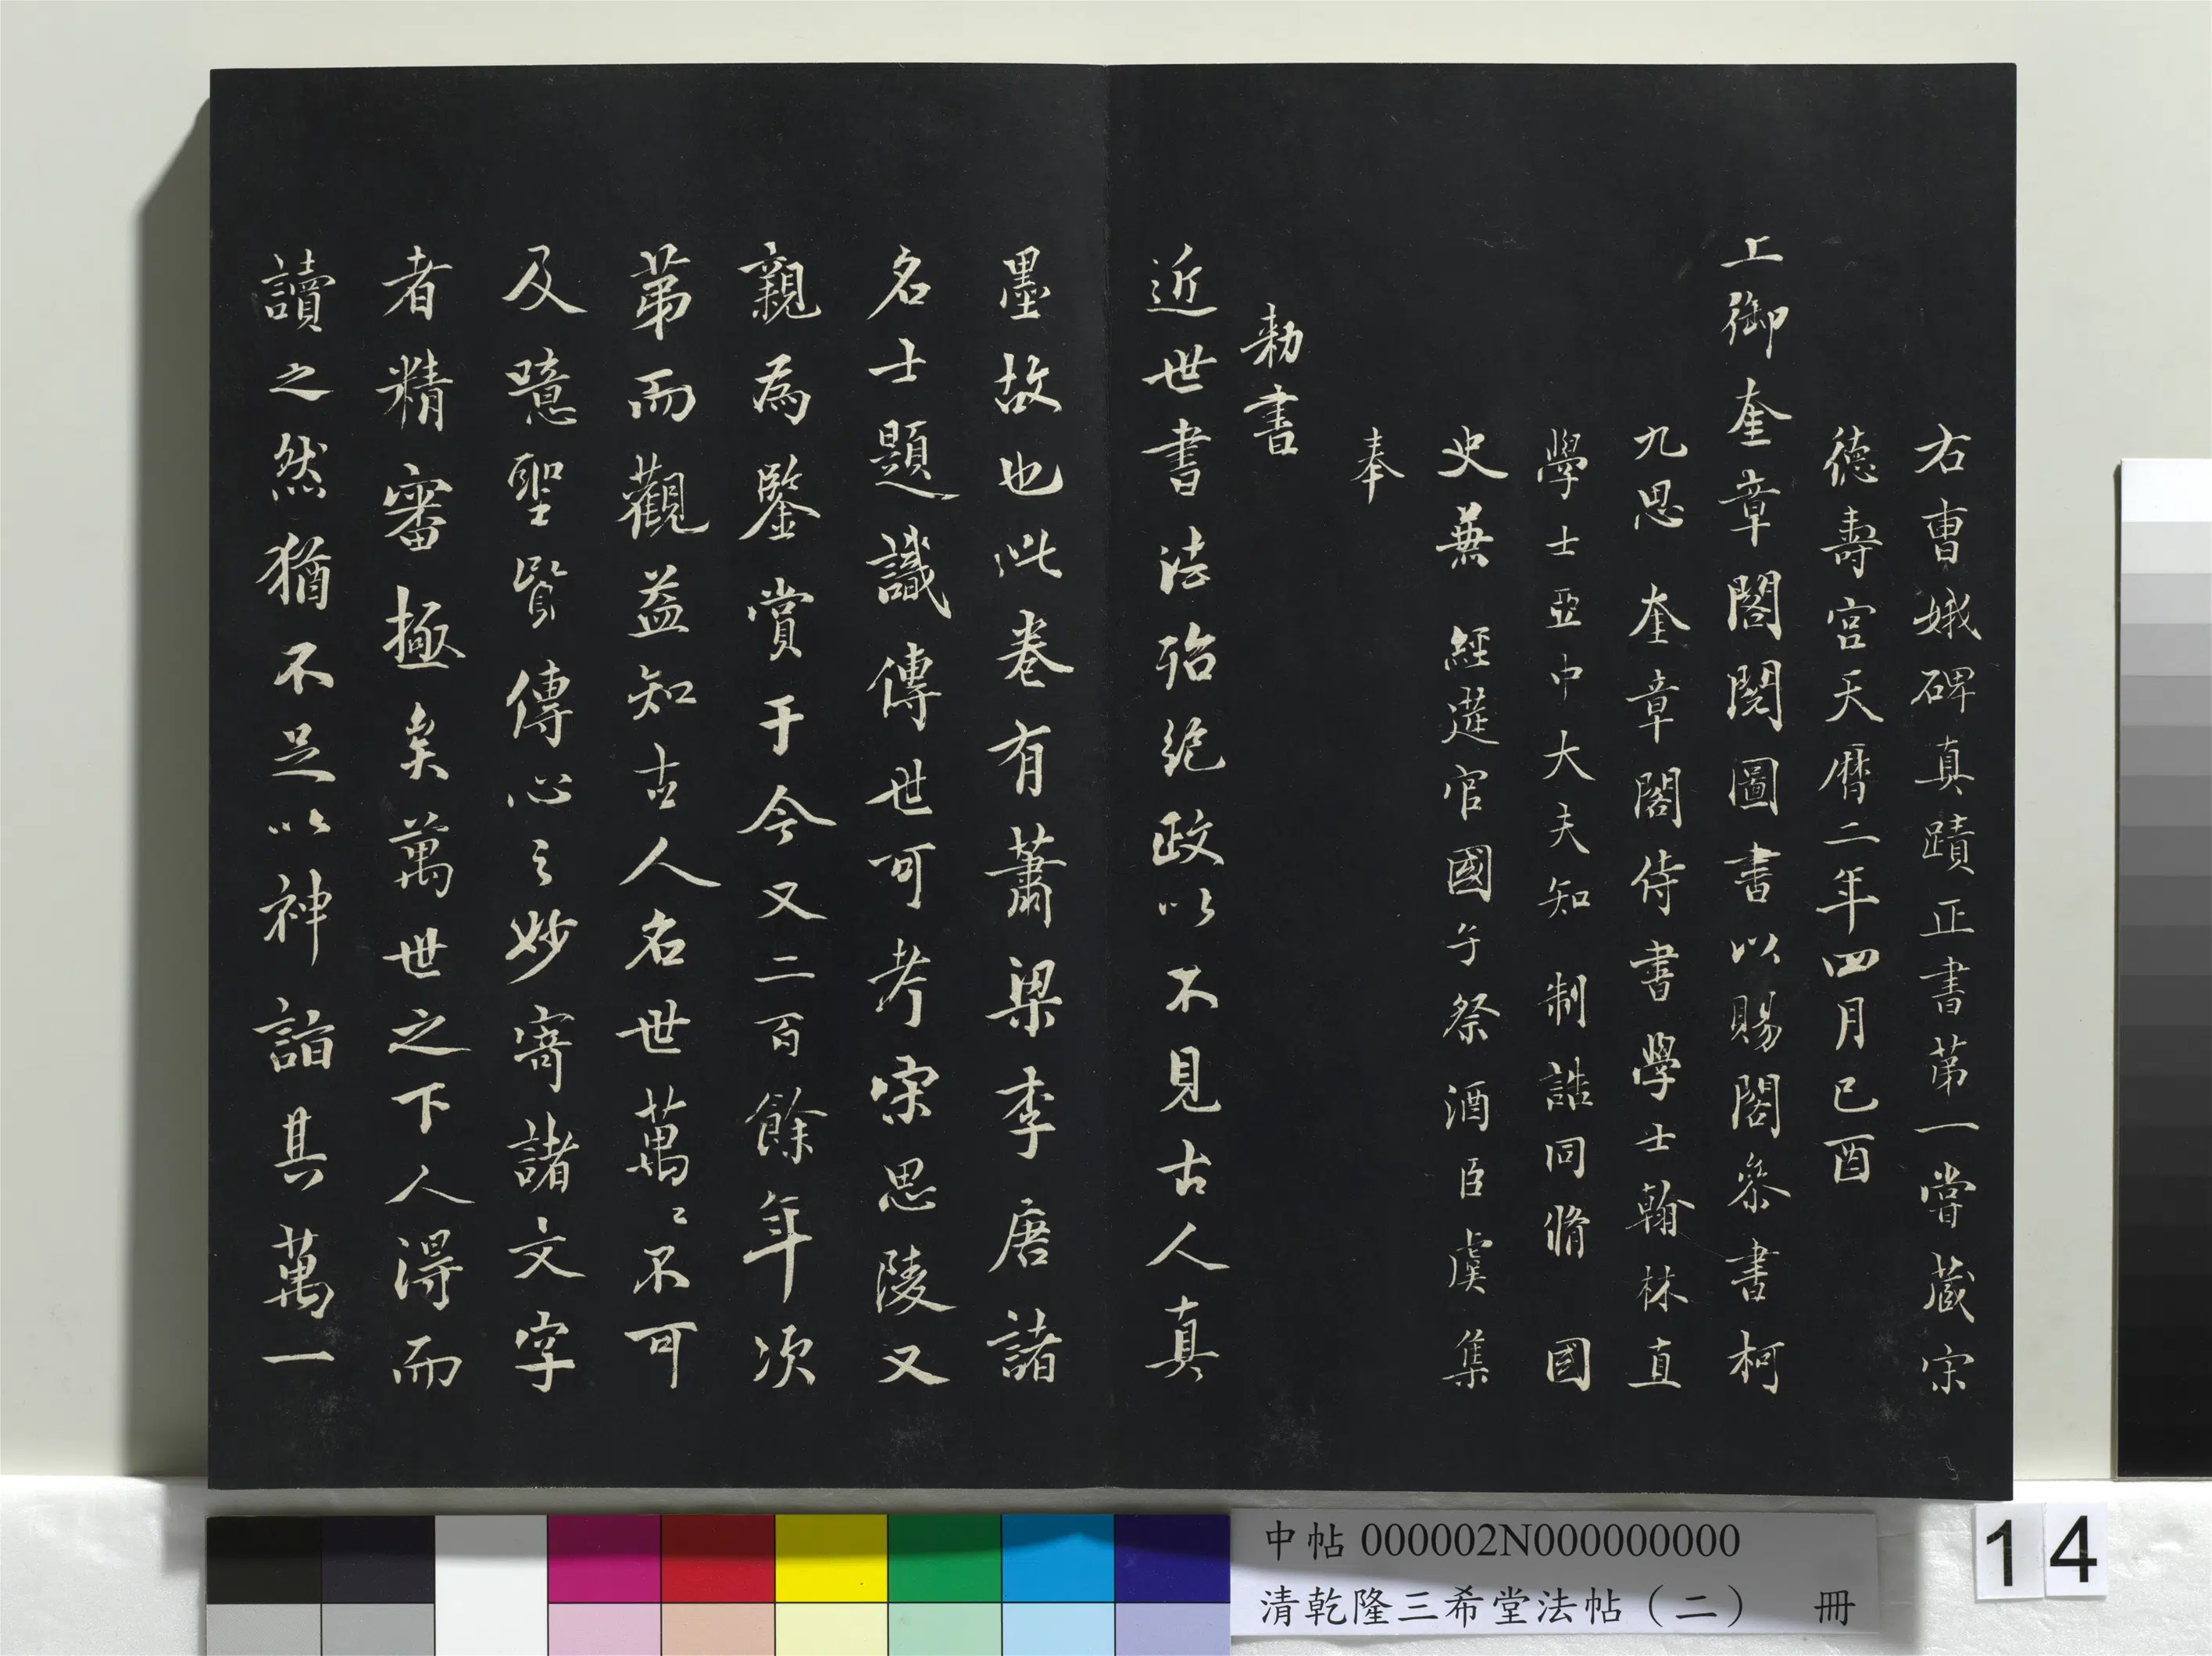 右曹娥碑真蹟正書第一嘗藏宋
德壽宮天曆二年四月己酉
上御奎章閣閱圖書以賜閣參書柯
九思 奎章閣侍書學士翰林直
學士亞中大夫知 制誥同脩 國
史兼 經筵官國子祭酒臣虞集
奉
勅書
近世書法殆絕政以不見古人真
墨故也此卷有蕭梁李唐諸
名士題識傳世可考宋思陵又
親為鑒賞于今又二百餘年次
苐而觀益知古人名世萬〻不可
及噫聖賢傳心之妙寄諸文字
者精審極矣萬世之下人得而
讀之然猶不足以神詣其萬一
中帖 000002N000000000
清乾隆三希堂法帖（二） 冊
14